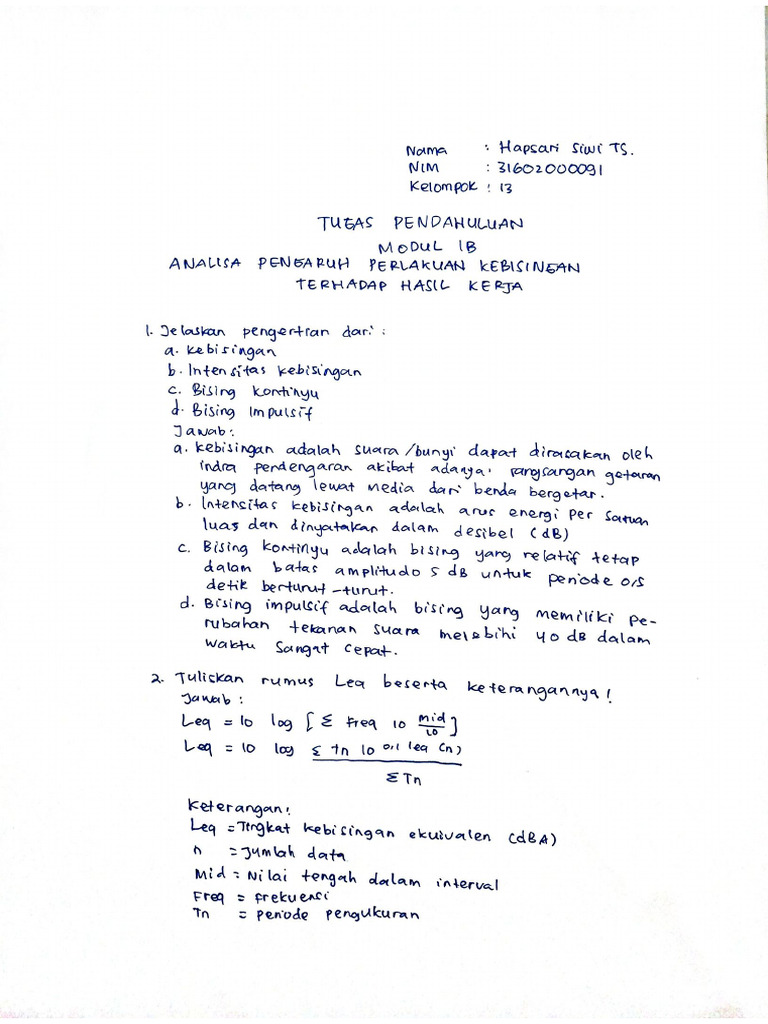 Nama : Hapsari Siwi TS.
NIM : 31602000091
Kelompok : 13
TUGAS PENDAHULUAN
MODUL 1B
ANALISA PENGARUH PERLAKUAN KEBISINGAN
TERHADAP HASIL KERJA
1. Jelaskan pengertian dari :
a. Kebisingan
b. Intensitas kebisingan
c. Bising kontinyu
d. Bising Impulsif
Jawab:
a. Kebisingan adalah suara/bunyi dapat dirasakan oleh
indra pendengaran akibat adanya rangsangan getaran
yang datang lewat media dari benda bergetar.
b. Intensitas kebisingan adalah arus energi per satuan
luas dan dinyatakan dalam desibel (dB)
c. Bising kontinyu adalah bising yang relatif tetap
dalam batas amplitudo 5 dB untuk periode 0,5
detik berturut-turut.
d. Bising impulsif adalah bising yang memiliki pe-
rubahan tekanan suara melebihi 40 dB dalam
waktu sangat cepat.
2. Tuliskan rumus Leq beserta keterangannya!
Jawab :
Leq = 10 log [Σ Freq 10 mid/10]
Leq = 10 log Σ Tn 10 0,1 leq (n)
Σ Tn
Keterangan:
Leq = Tingkat kebisingan ekuivalen (dBA)
n = Jumlah data
Mid = Nilai tengah dalam interval
Freq = frekuensi
Tn = periode pengukuran